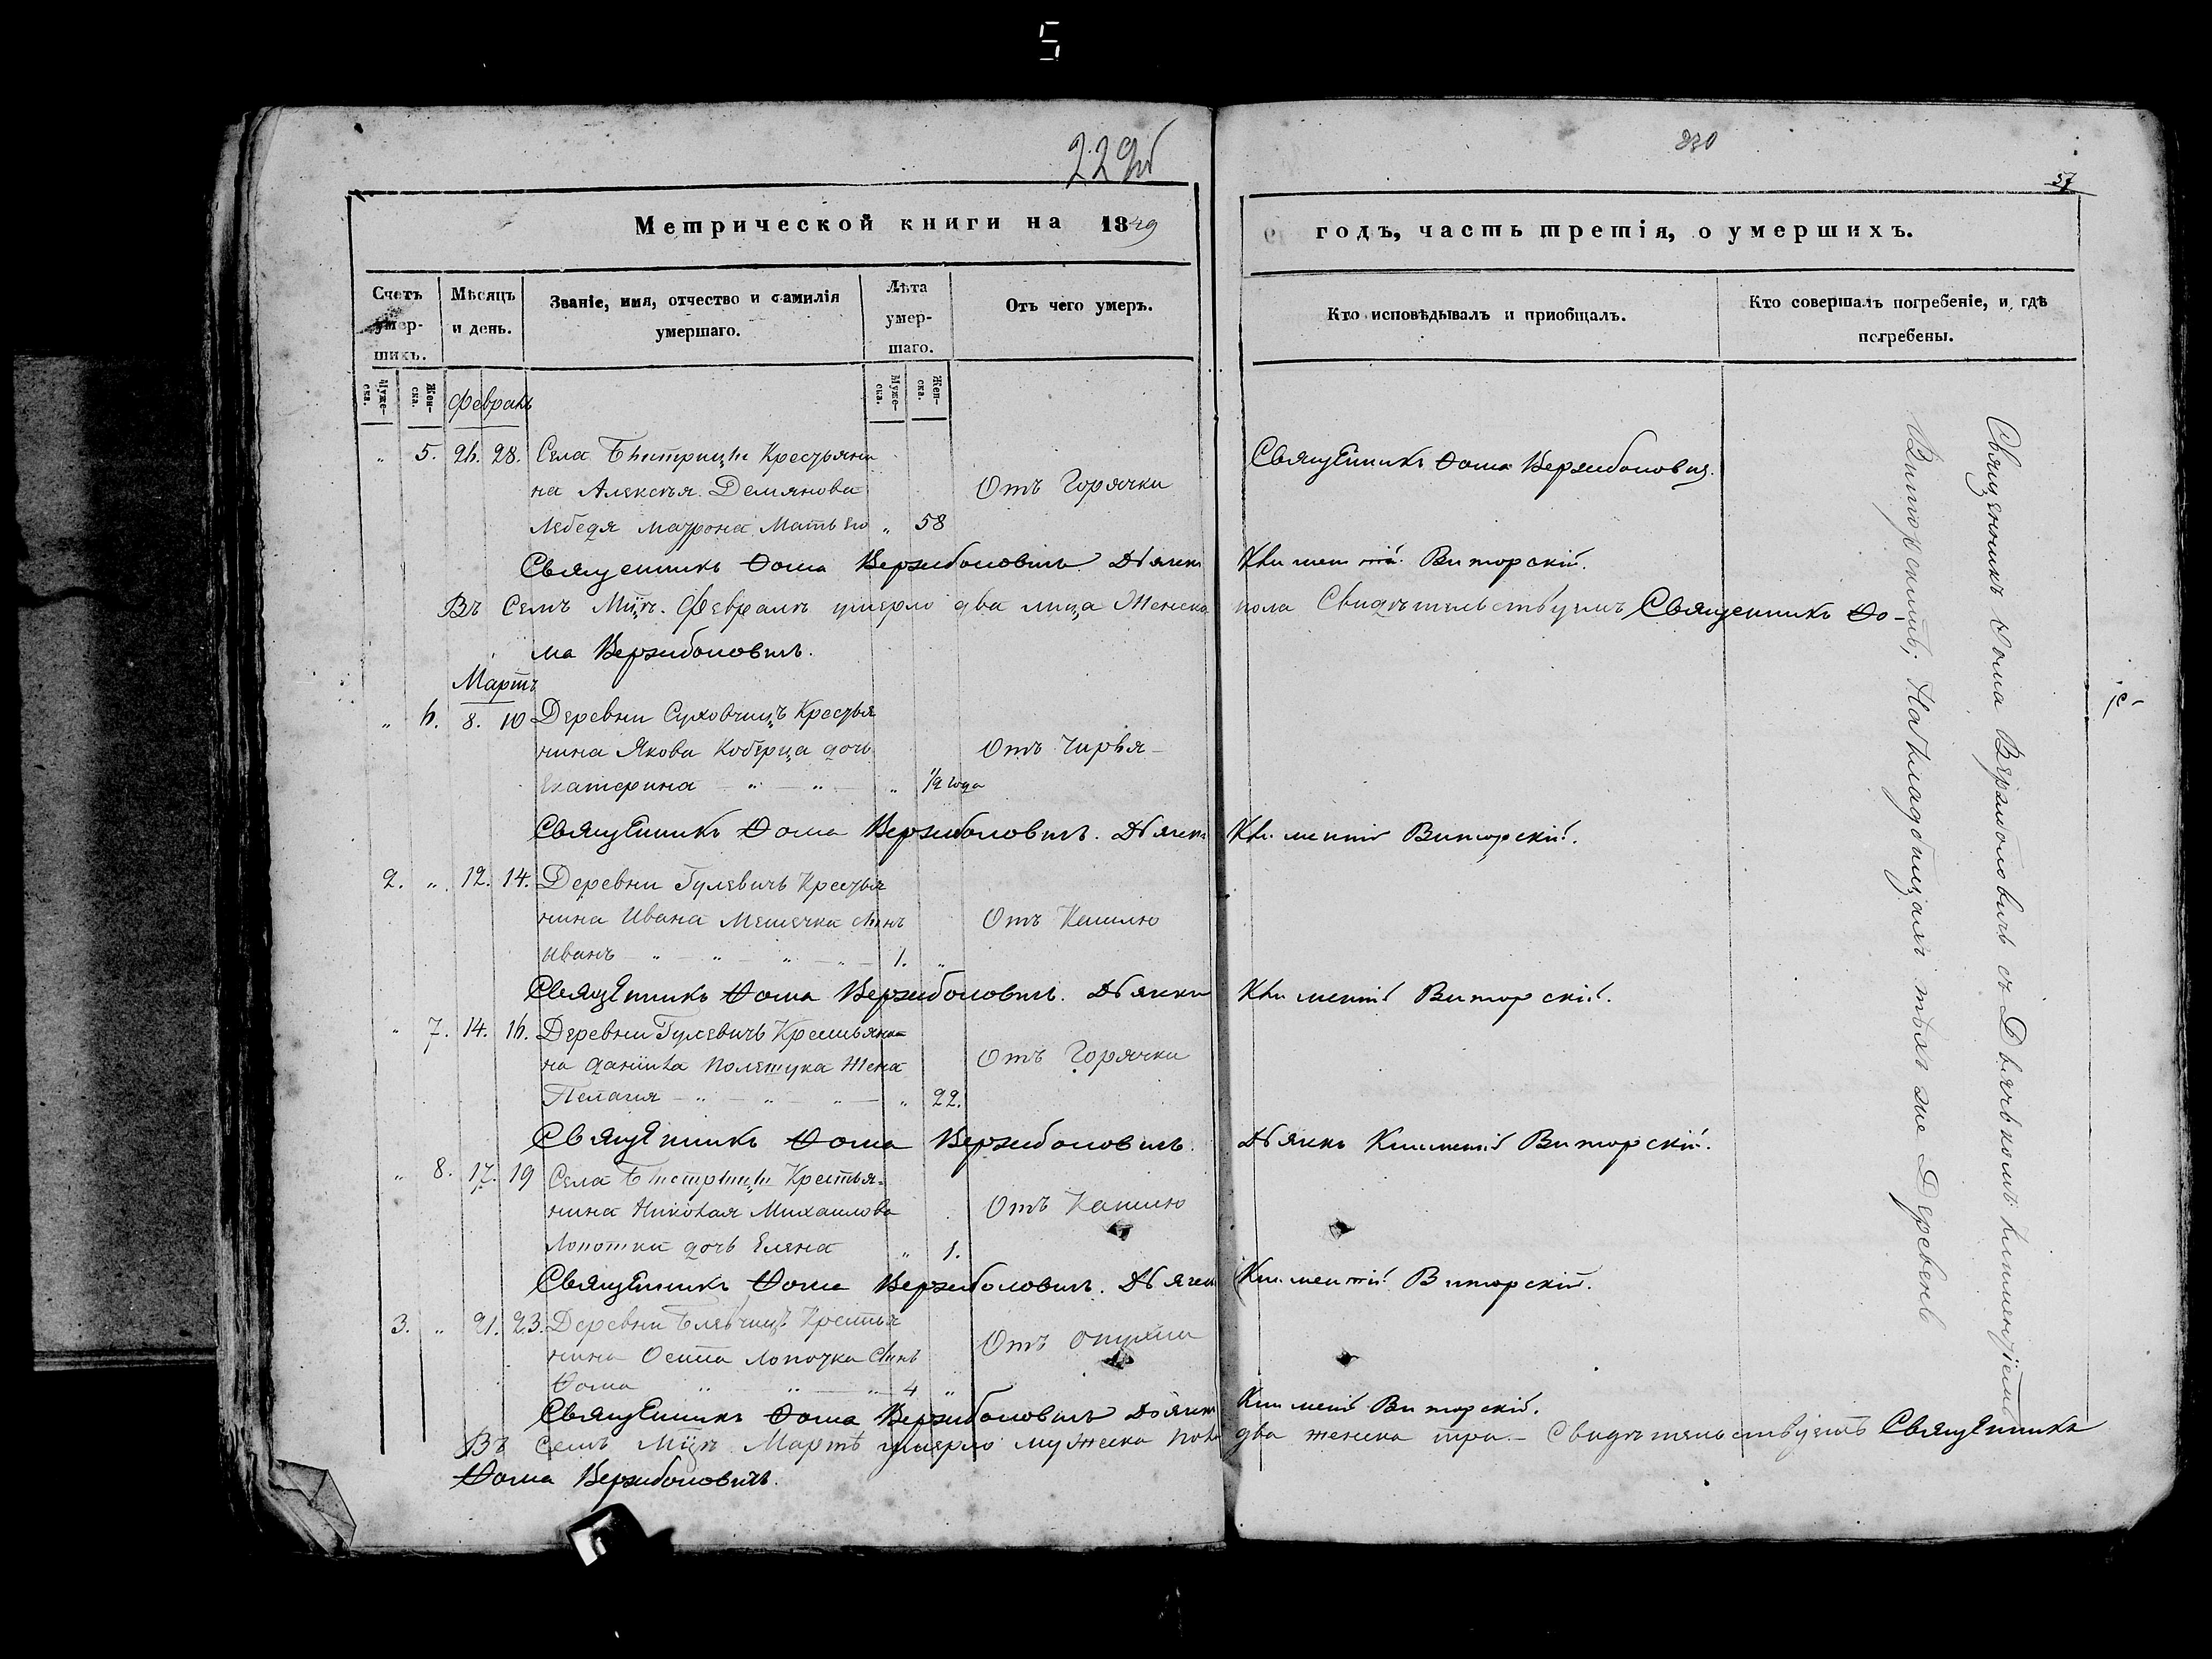 5
229об
Метрической книги на 1849
Счетъ умер-шихъ.
Мѣсяцъ и день.
Званіе, имя, отчество и фамилія умершаго.
Лѣта умер-шаго.
Отъ чего умеръ.
Муже-ска.
Жен-ска.
Муже-ска.
Жен-ска.
Февраль
„ 5. 26. 28. Села Быстрицы Крестьяни
на Алексѣя Демянова
Отъ Горячки
Лебедя Матрона Мать его „ 58
Священникъ Ѳома Вержболовичъ Дьячекъ
Въ семъ Мцѣ Февралѣ умерло два лица Женска
Март
„ 6. 8. 10 Деревни Суховчицъ Крестья
нина Якова Коберца дочь
Отъ Чирья
Екатерина „ „ „ 1/2 года
Священникъ Ѳома Вержболовичъ. Дьячекъ
2. „ 12. 14. Деревни Гулевичъ Крестья
нина Ивана Мешечка сынъ
Отъ Кашлю
Иванъ „ „ „ „ 1. „
Священникъ Ѳома Вержболовичъ. Дьячекъ
„ 7. 14. 16. Деревни Гулевичъ Крестьяни-
на Данила Полещука Жена
Отъ Горячки
Пелагия „ „ „ „ 22.
Священникъ Ѳома Вержболовичъ.
„ 8. 17. 19 Села Быстрицы Крестья-
нина Николая Михаилова
Отъ Кашлю
Лопотки дочь Елена „ 1.
Священникъ Ѳома Вержболовичъ. Дьячекъ
3. „ 21. 23. Деревни Крестья
нина Осипа Лопочка сынъ
Отъ опухли
Ѳома „ „ „ 4 „
Священникъ Ѳома Вержболовичъ Дьячекъ
Въ семъ Мцѣ Мартѣ умерло мужеска пола
Ѳома Вержболовичъ.
230
57
годъ, часть третія, о умершихъ.
Кто исповѣдывалъ и приобщалъ.
Кто совершалъ погребеніе, и гдѣ погребены.
Священникъ Ѳома Вержболовичъ.
Климентій Виторскій.
пола Свидѣтельствуетъ Священникъ Ѳо-
ма Вержболовичъ.
Климентій Виторскій.
Климентій Виторскій.
Дьячекъ Климентій Виторскій.
Климентій Виторскій.
Климентій Виторскій.
два женска три. Свидѣтельствуетъ Священникъ
Священникъ Ѳома Вержболовичъ съ Дьячькомъ Климентіемъ
Виторскимъ; На Кладбищахъ тѣхъ же Деревень